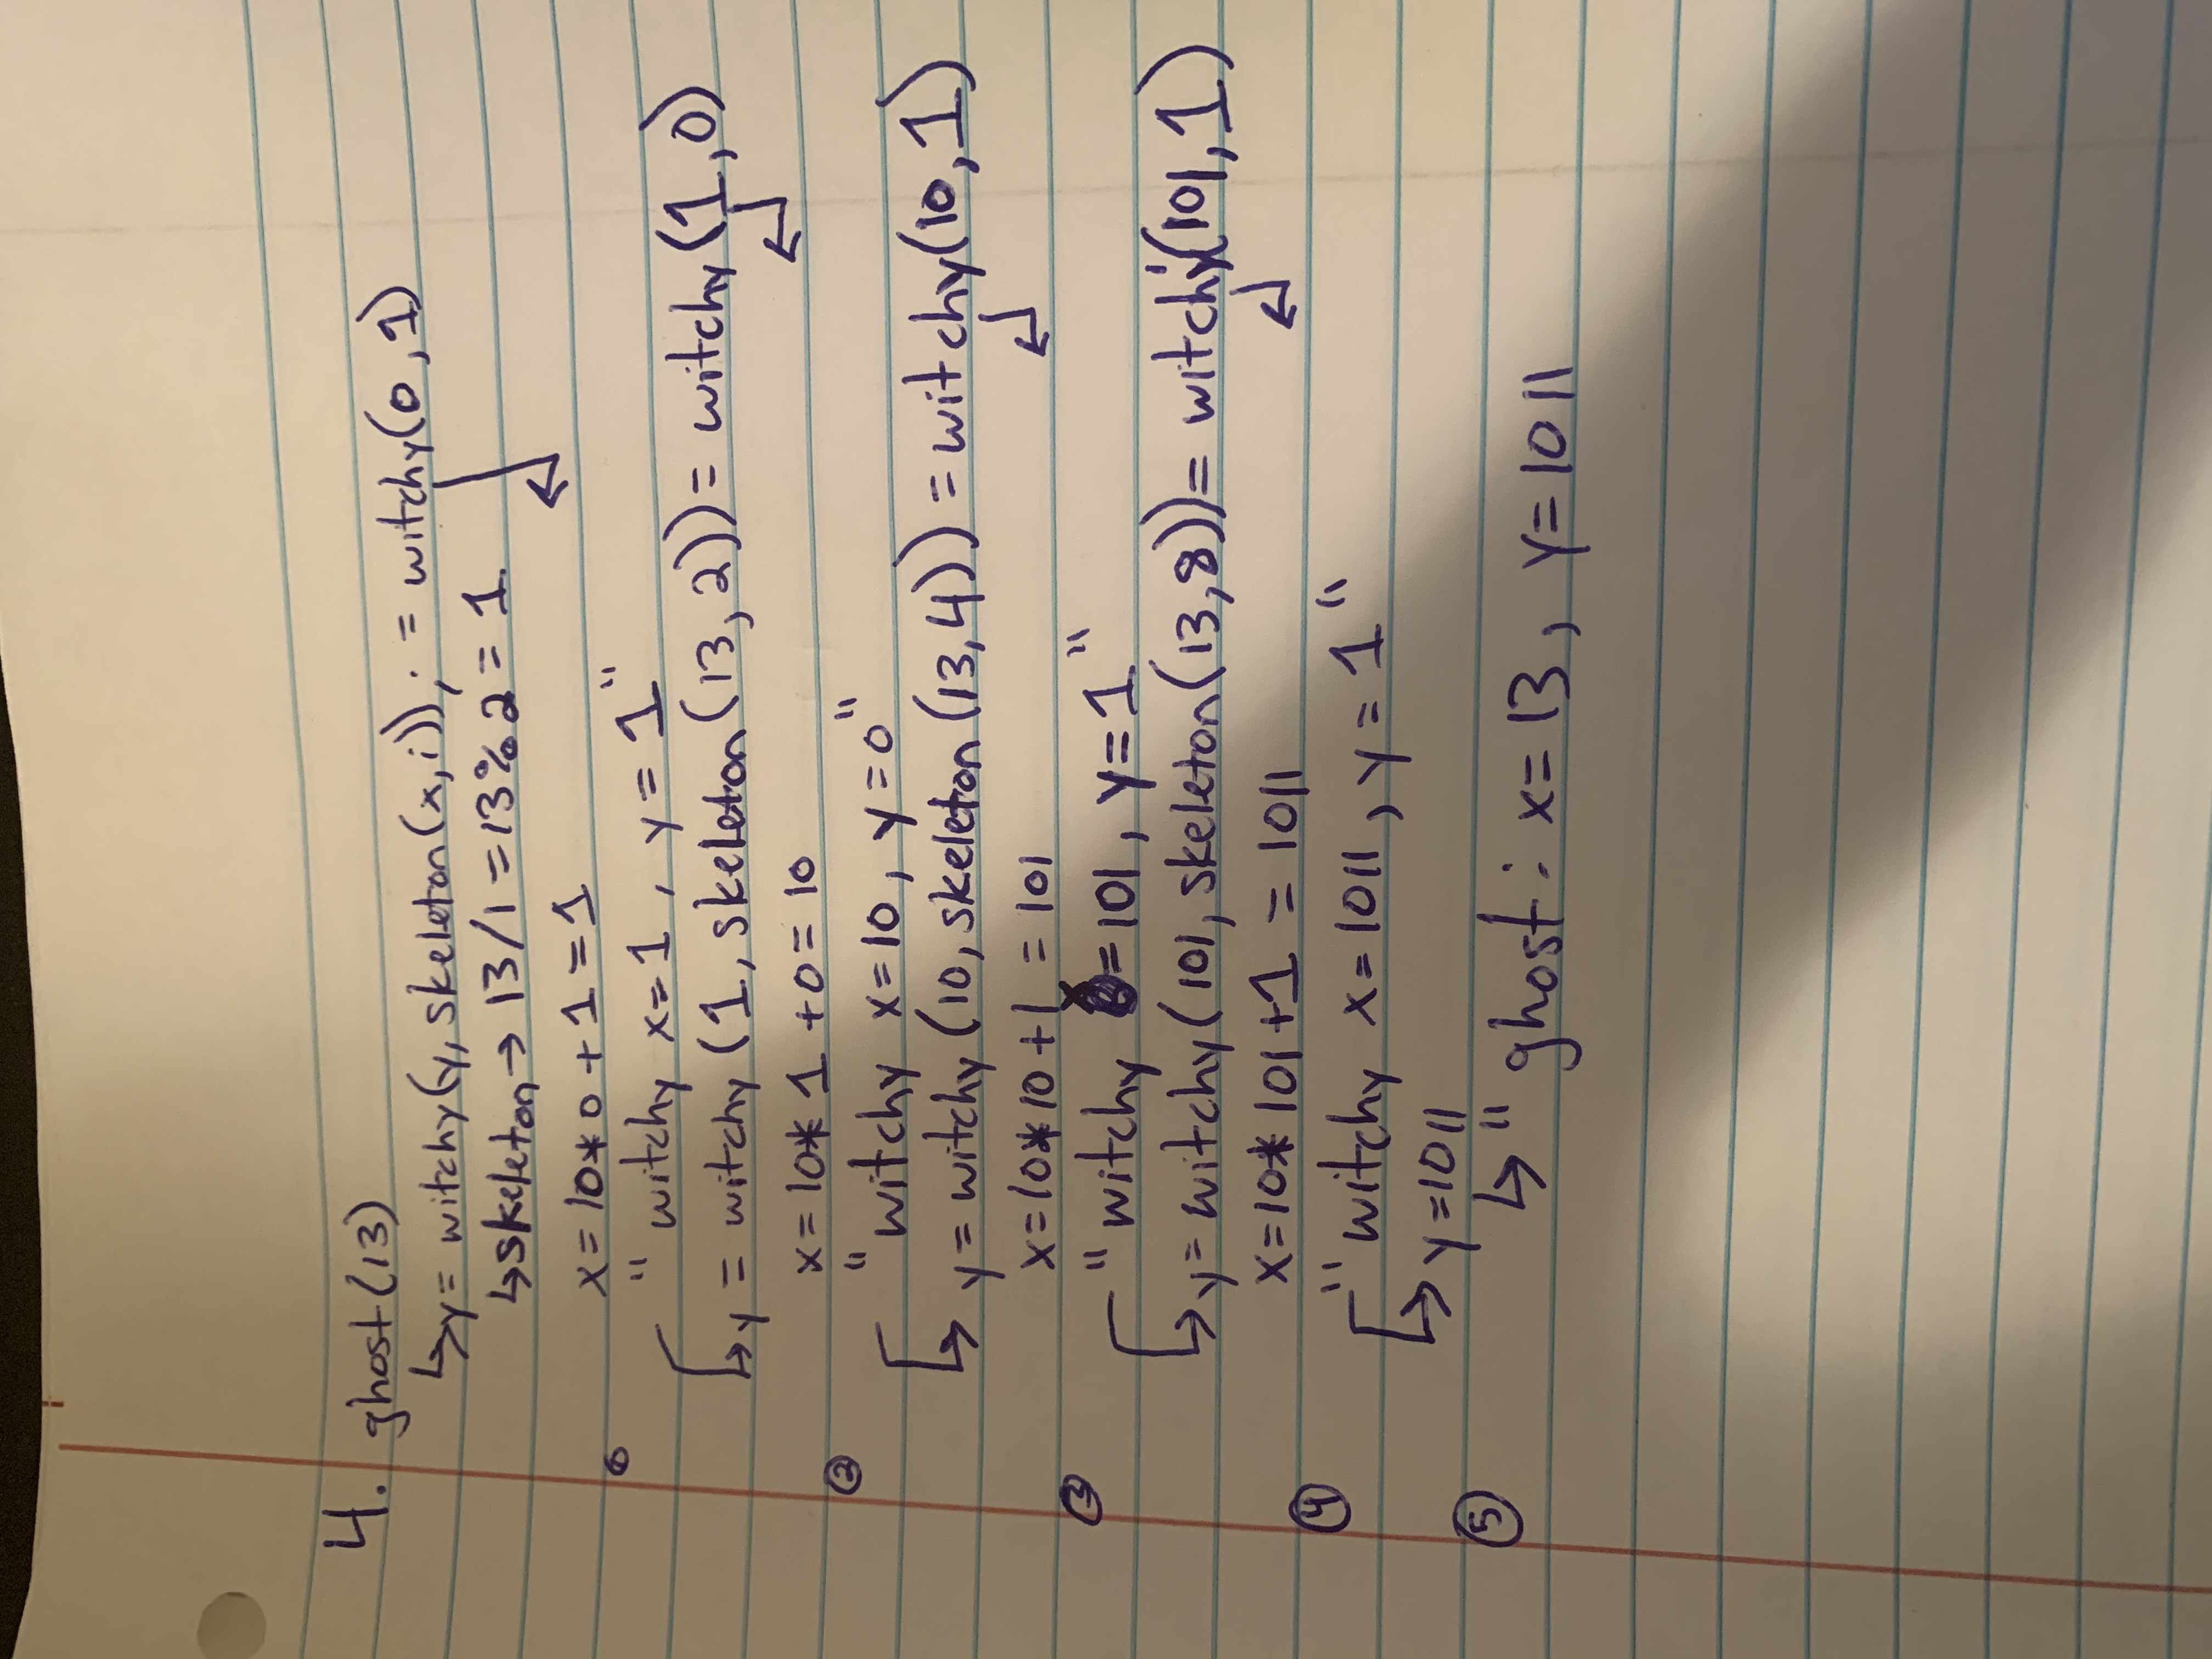 4. ghost(13)
↳y= witchy(y, skeleton(x,i)); = witchy(0,1)
↳skeleton→ 13/1 =13%2= 1
x= 10*0 +1 =1
" witchy x=1 , y= 1"
↳y = witchy (1, skeleton(13,2))= witchy(1,0)
x= 10* 1 +0= 10
②
"witchy x=10, y=0"
↳ y= witchy (10, skeleton (13,4)) = witchy(10,1)
x=10*10+1 = 101
③
"witchy x=101, y=1"
↳y= witchy(101, skeleton(13,8))= witchy(101,1)
x=10* 101+1 = 1011
④
"witchy x=1011, y=1"
↳ y=1011
⑤
↳ " ghost: x= 13, y=1011